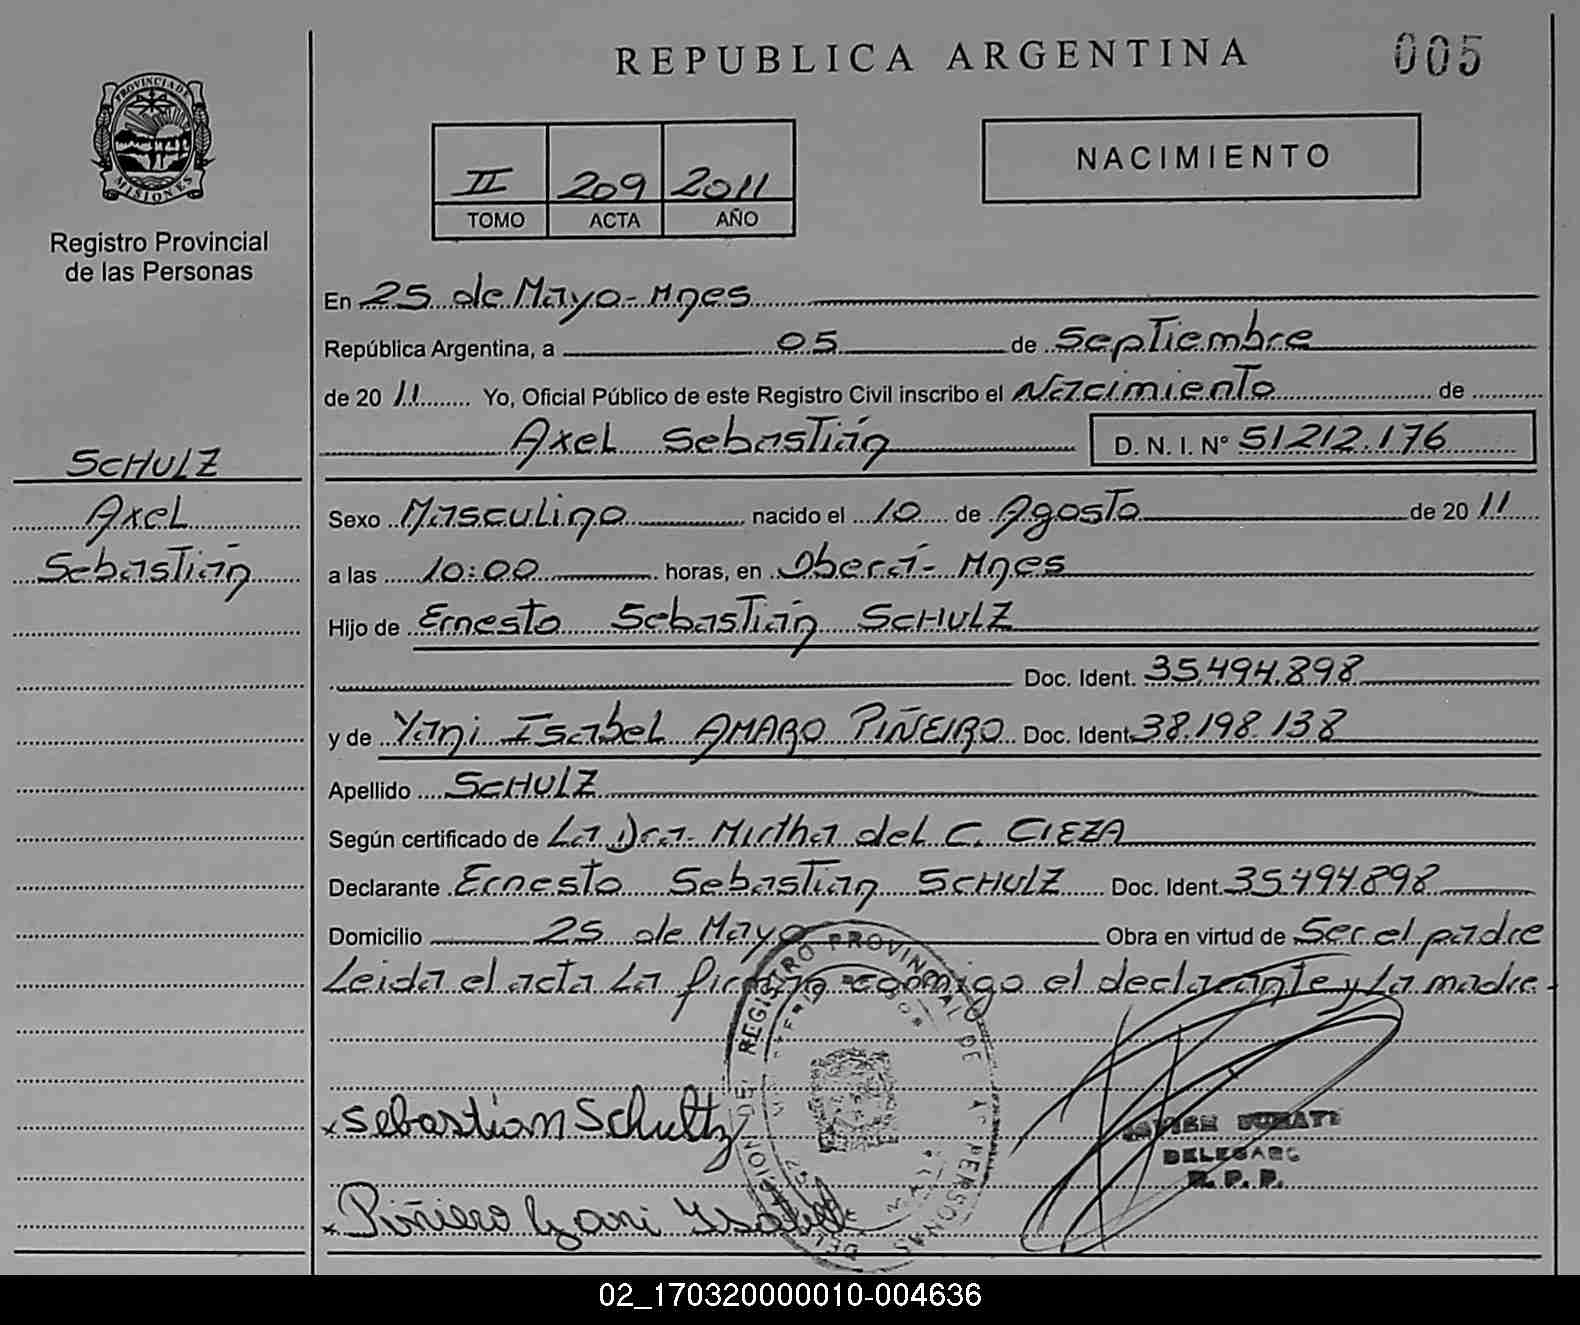 REPUBLICA ARGENTINA
005
PROVINCIA DE MISIONES
Registro Provincial
de las Personas
II 209 2011
TOMO ACTA AÑO
NACIMIENTO
En 25 de Mayo - Mnes
República Argentina, a 05 de Septiembre
de 20 11 Yo, Oficial Público de este Registro Civil inscribo el Nacimiento de
Axel Sebastián D. N. I. Nº 51212.176
SCHULZ
Axel
Sebastián
Sexo Masculino nacido el 10 de Agosto de 20 11
a las 10:00 horas, en Oberá - Mnes
Hijo de Ernesto Sebastián SCHULZ
Doc. Ident. 35.494.898
y de Yani Isabel AMARO PIÑEIRO Doc. Ident. 38.198.138
Apellido SCHULZ
Según certificado de La Dra. Mirtha del C. CIEZA
Declarante Ernesto Sebastián SCHULZ Doc. Ident. 35494.898
Domicilio 25 de Mayo Obra en virtud de Ser el padre
Leida el acta La firman conmigo el declarante y La madre.
REGISTRO PROVINCIAL DE PERSONAS
x Sebastian Schultz
x Piñiero Yani Ysabel
DELEGADO
R. P. P.
02_170320000010-004636